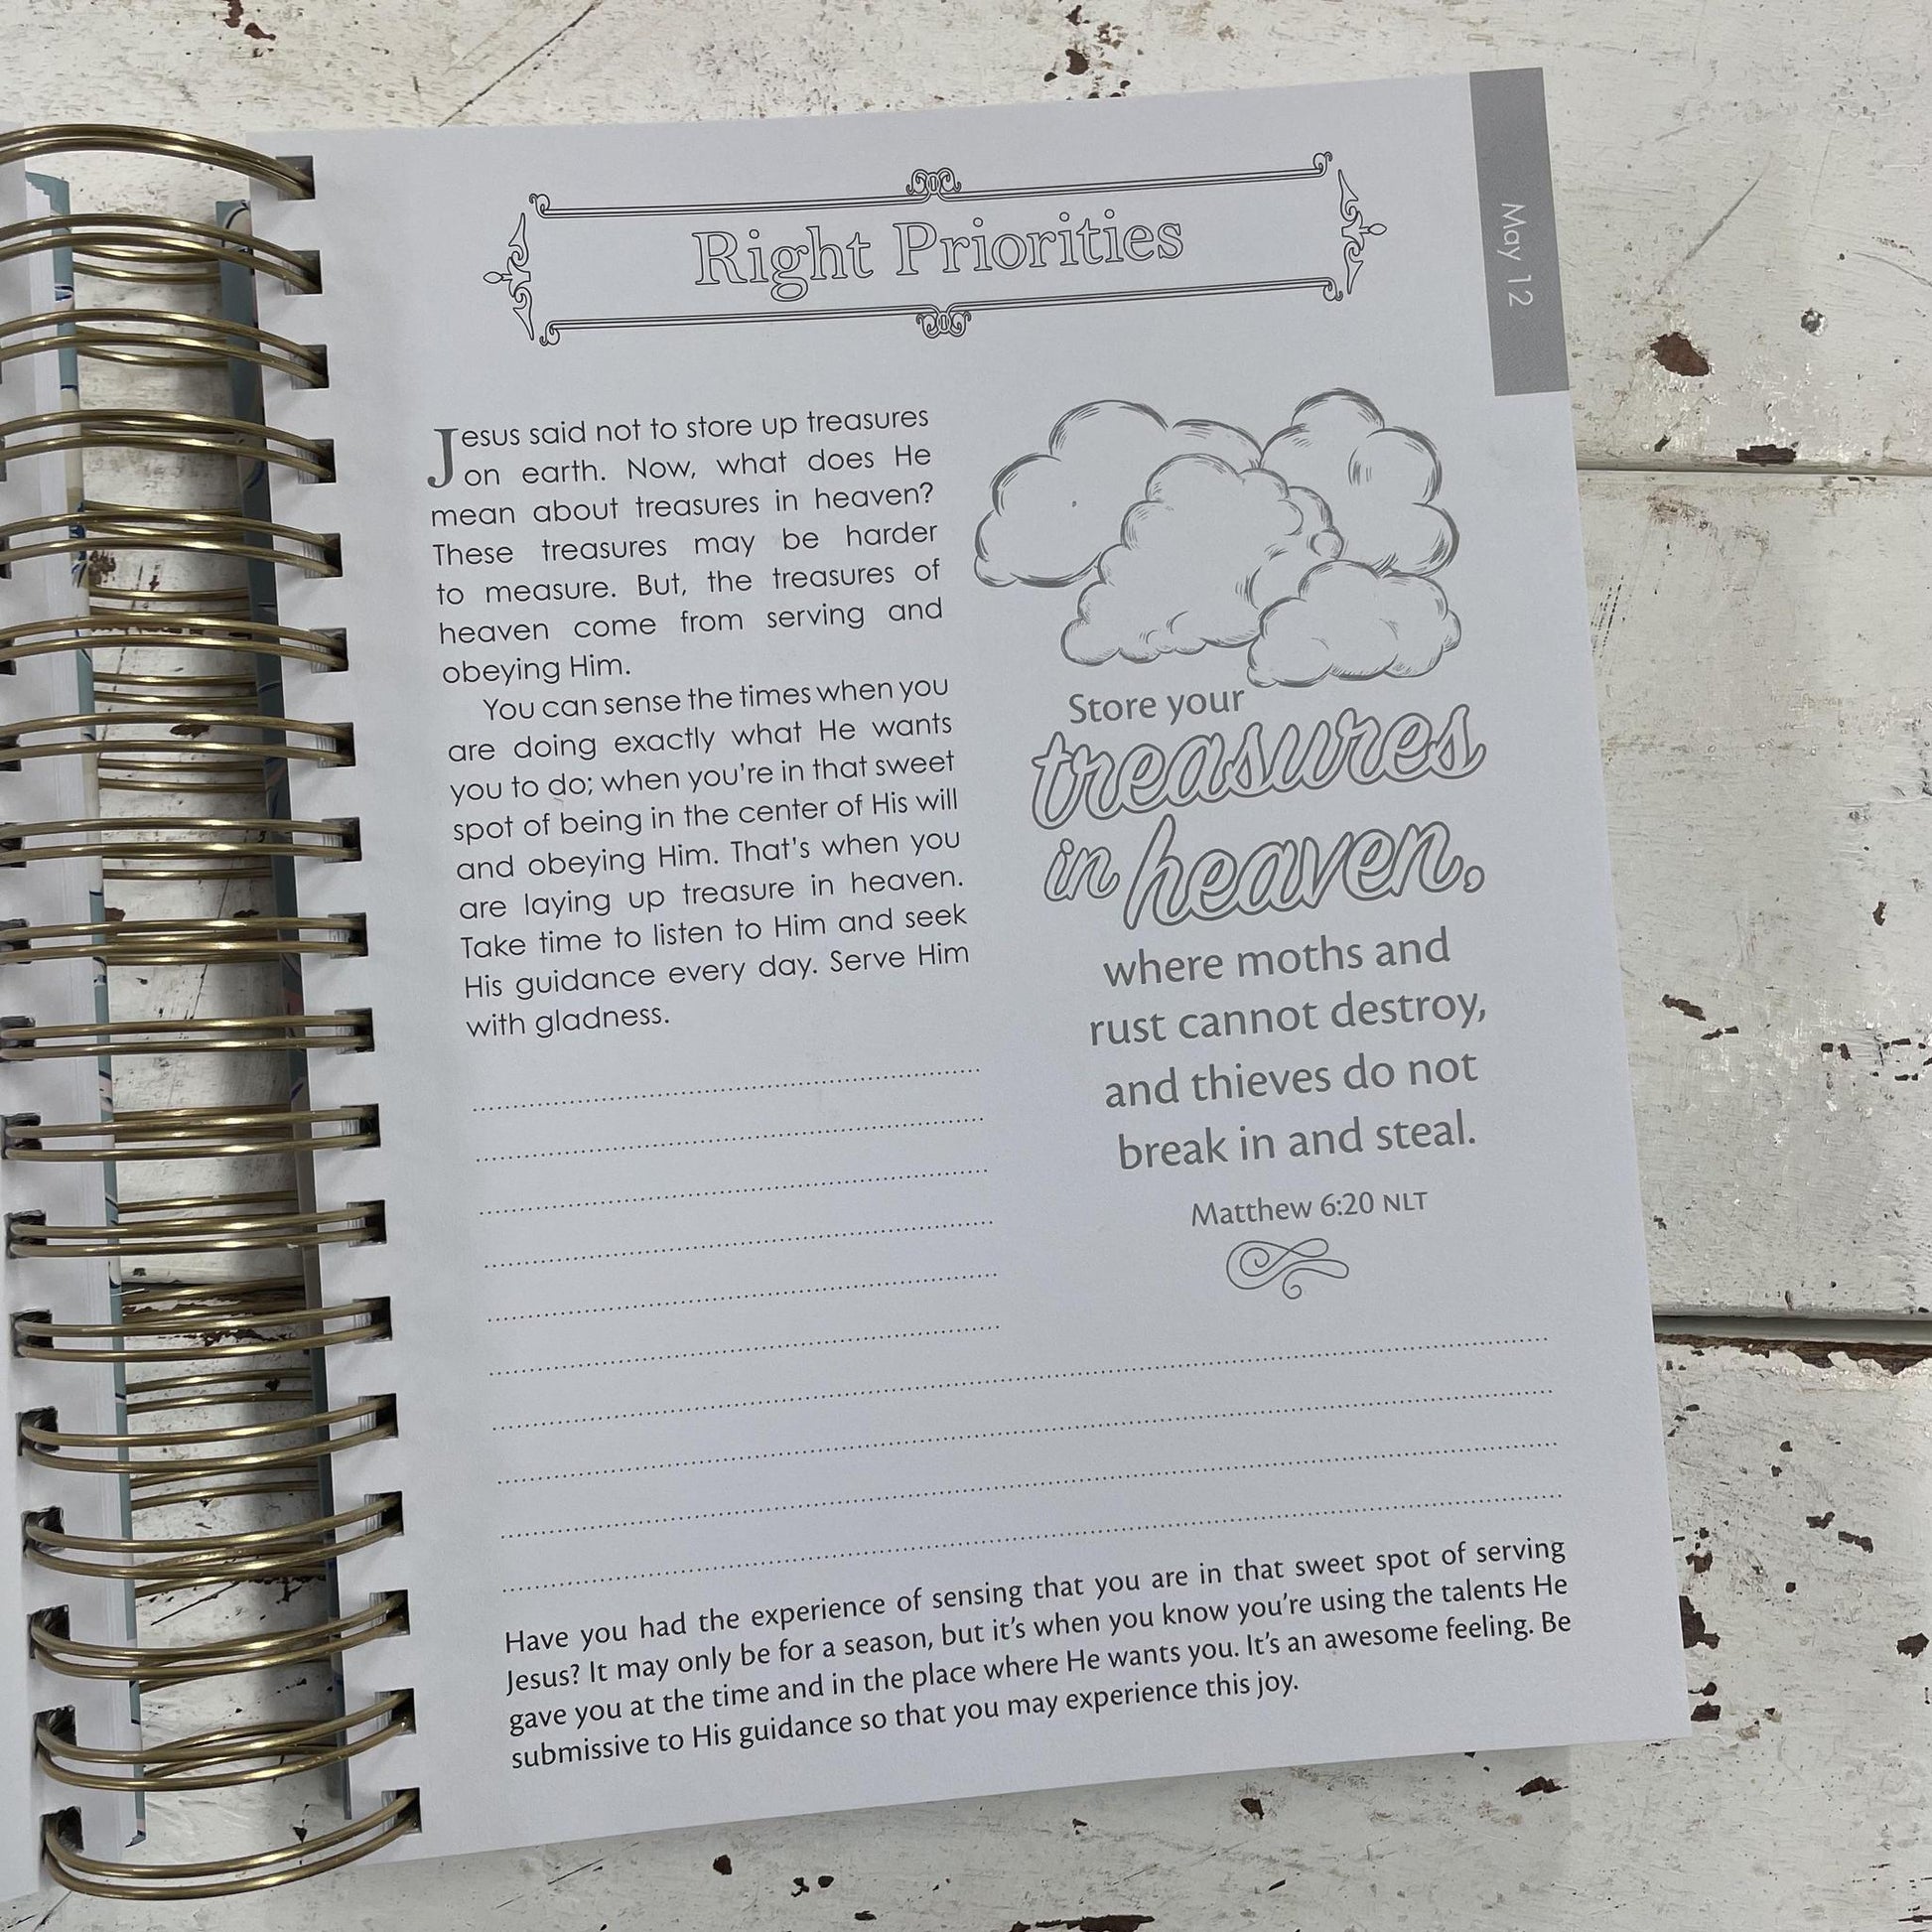 Right Priorities
May 12
Jesus said not to store up treasures
on earth. Now, what does He
mean about treasures in heaven?
These treasures may be harder
to measure. But, the treasures of
heaven come from serving and
obeying Him.
You can sense the times when you
are doing exactly what He wants
you to do; when you're in that sweet
spot of being in the center of His will
and obeying Him. That's when you
are laying up treasure in heaven.
Take time to listen to Him and seek
His guidance every day. Serve Him
with gladness.
Store your
treasures
in heaven,
where moths and
rust cannot destroy,
and thieves do not
break in and steal.
Matthew 6:20 NLT
Have you had the experience of sensing that you are in that sweet spot of serving
Jesus? It may only be for a season, but it's when you know you're using the talents He
gave you at the time and in the place where He wants you. It's an awesome feeling. Be
submissive to His guidance so that you may experience this joy.